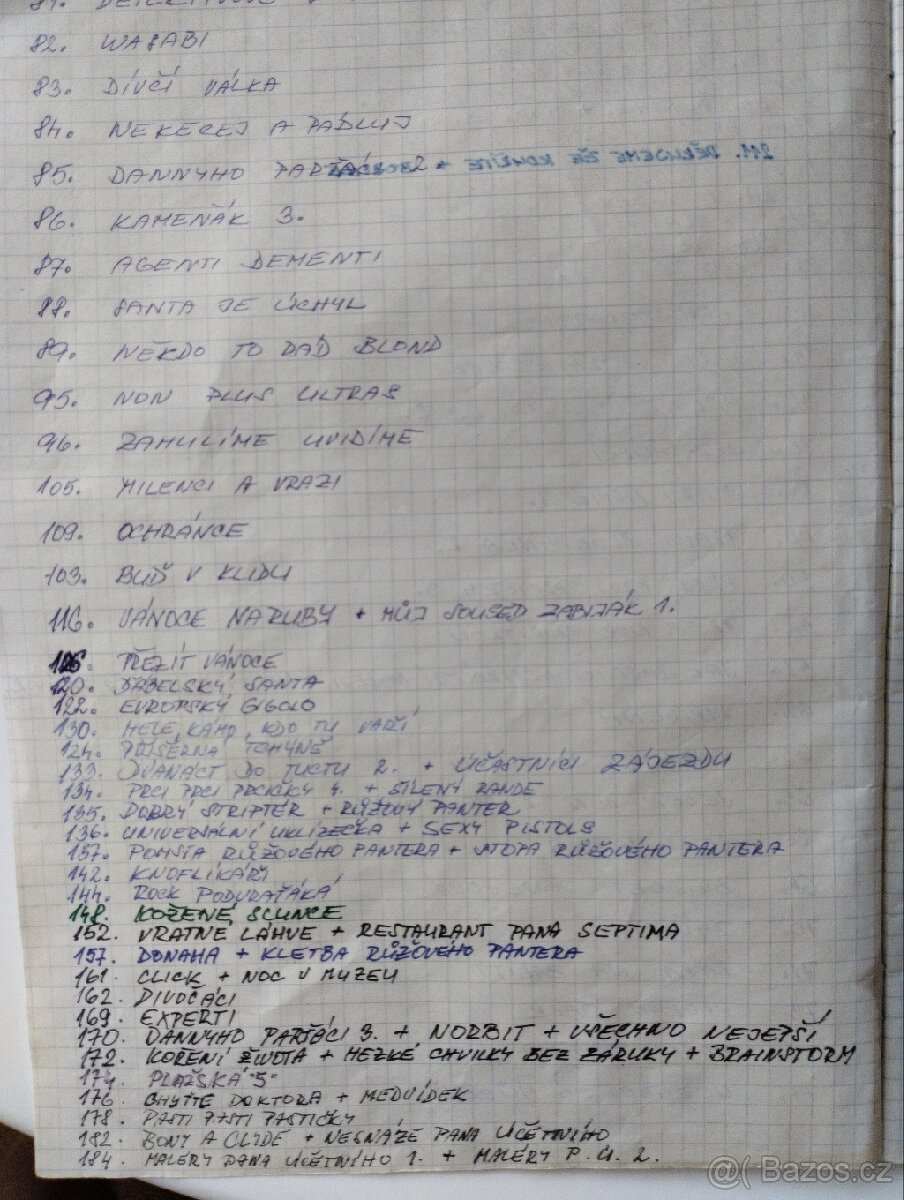 82. WASABI
83. DÍVČÍ VÁLKA
84. NEKECEJ A PÁDLUJ
85. DANNYHO PARŤÁCI 2
86. KAMEŇÁK 3.
87. AGENTI DEMENTI
88. SANTA JE ÚCHYL
89. NĚKDO TO DÁD BLOND
95. NON PLUS ULTRAS
96. ZAHULÍME UVIDÍME
105. MILENCI A VRAZI
109. OCHRÁNCE
103. BUĎ V KLIDU
116. VÁNOCE NARUBY + MŮJ SOUSED ZABIJÁK 1.
PŘEŽÍT VÁNOCE
120. ĎÁBELSKÝ SANTA
122. EVROPSKÝ GIGOLO
130. HELE, KÁMO, KDO TU VAŘÍ
124. PŘÍŠERNÁ TCHÝNĚ
133. DVANÁCT DO TUCTU 2. + ÚČASTNÍCI ZÁJEZDU
134. PRCI PRCI PRCIČKY 4. + ŠÍLENÝ RANDE
135. DOBRÝ STRIPTÉR + RŮŽOVÝ PANTER
136. UNIVERSÁLNÍ UKLÍZEČKA + SEXY PISTOLS
137. POMSTA RŮŽOVÉHO PANTERA + STOPA RŮŽOVÉHO PANTERA
142. KNOFLÍKÁŘI
144. ROCK PODVRAŤÁKŮ
148. KOŽENÉ SLUNCE
152. VRATNÉ LÁHVE + RESTAURANT PANA SEPTIMA
157. DONAHA + KLETBA RŮŽOVÉHO PANTERA
161. CLICK + NOC V MUZEU
162. DIVOČÁCI
169. EXPERTI
170. DANNYHO PARŤÁCI 3. + NORBIT + VŠECHNO NEJEPŠÍ
172. KOŘENÍ ŽIVOTA + HEZKÉ CHVILKY BEZ ZÁRUKY + BRAINSTORM
174. PLAŽSKÁ "5"
176. CHYŤTE DOKTORA + MEDVÍDEK
178. PASTI PASTI PASTIČKY
182. BONY A CLYDE + NESNÁZE PANA ÚČETNÍHO
184. MALÉRY PANA ÚČETNÍHO 1. + MALÉRY P. Ú. 2.
@( Bazos.cz